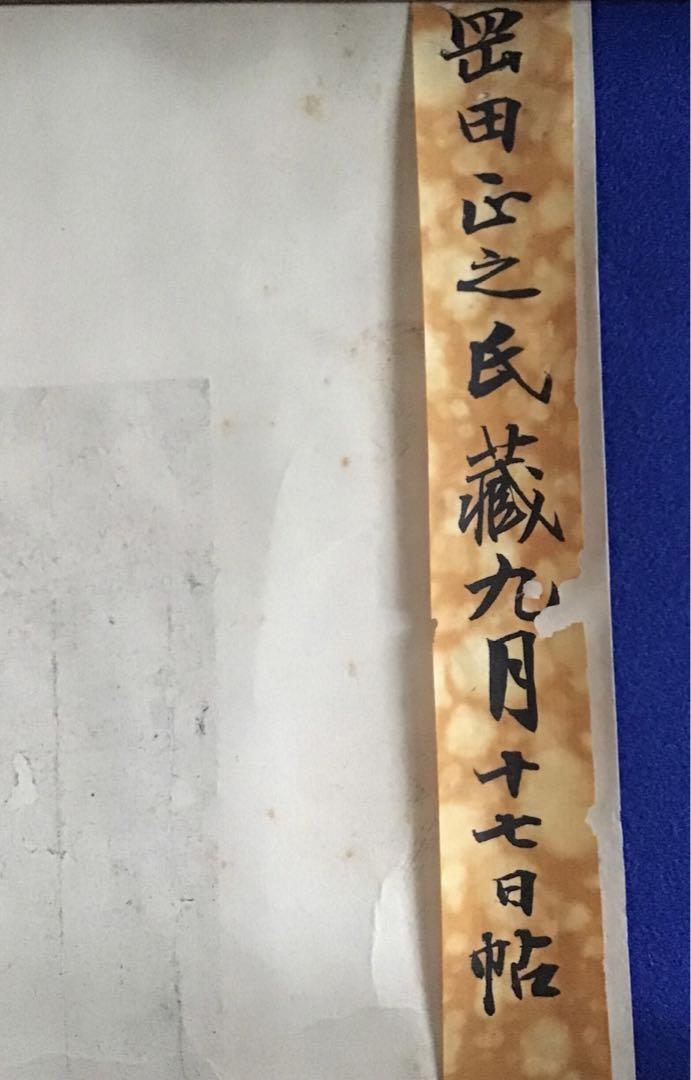 岡田正之氏藏九月十七日帖